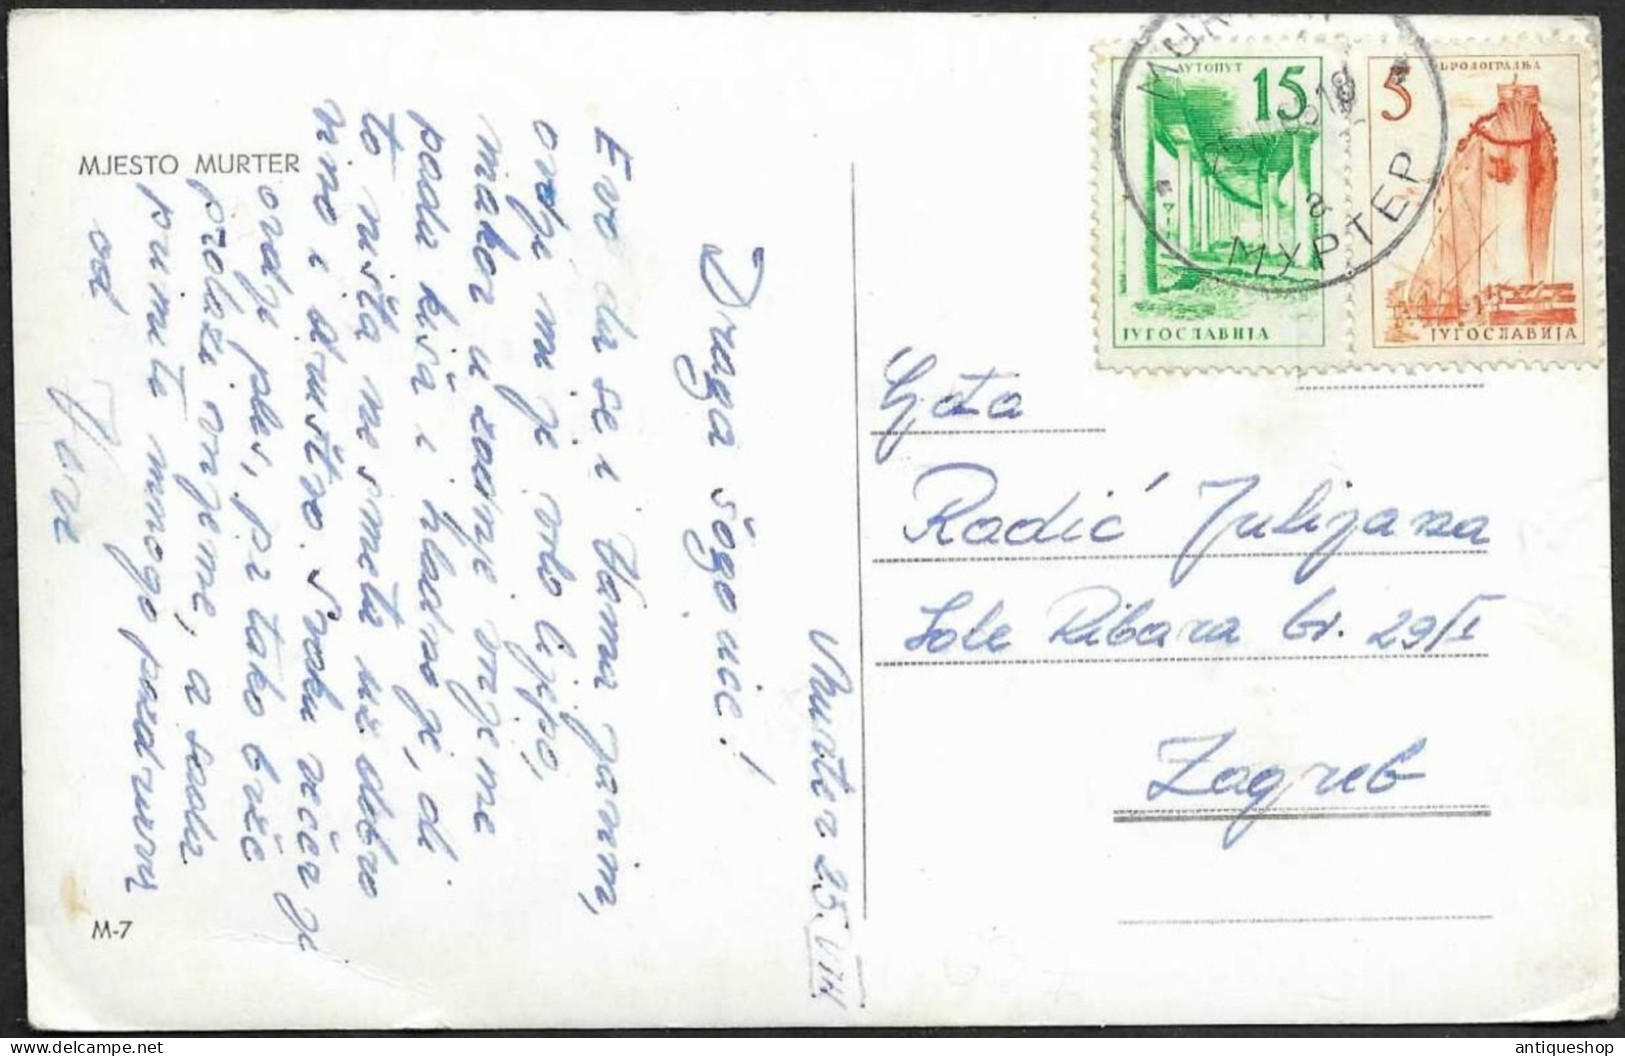 MJESTO MURTER
M-7
Murter 25. VIII
Draga šogorice!
Evo da se i Vama javim,
ovdje mi je vrlo lijepo,
makar u zadnje vrijeme
pada kiša i hladno je, ali
to ništa ne smeta uz dobro
vino i društvo. Svaku večer je
ovdje ples, pa tako brže
prolazi vrijeme, a sada
primite mnogo pozdrava
od
АУТОПУТ
15
ЈУГОСЛАВИЈА
БРОДОГРАДЊА
5
ЈУГОСЛАВИЈА
МУРТЕР
a
Gđa
Radić Julijana
Lole Ribara br. 29/I
Zagreb
antiqueshop